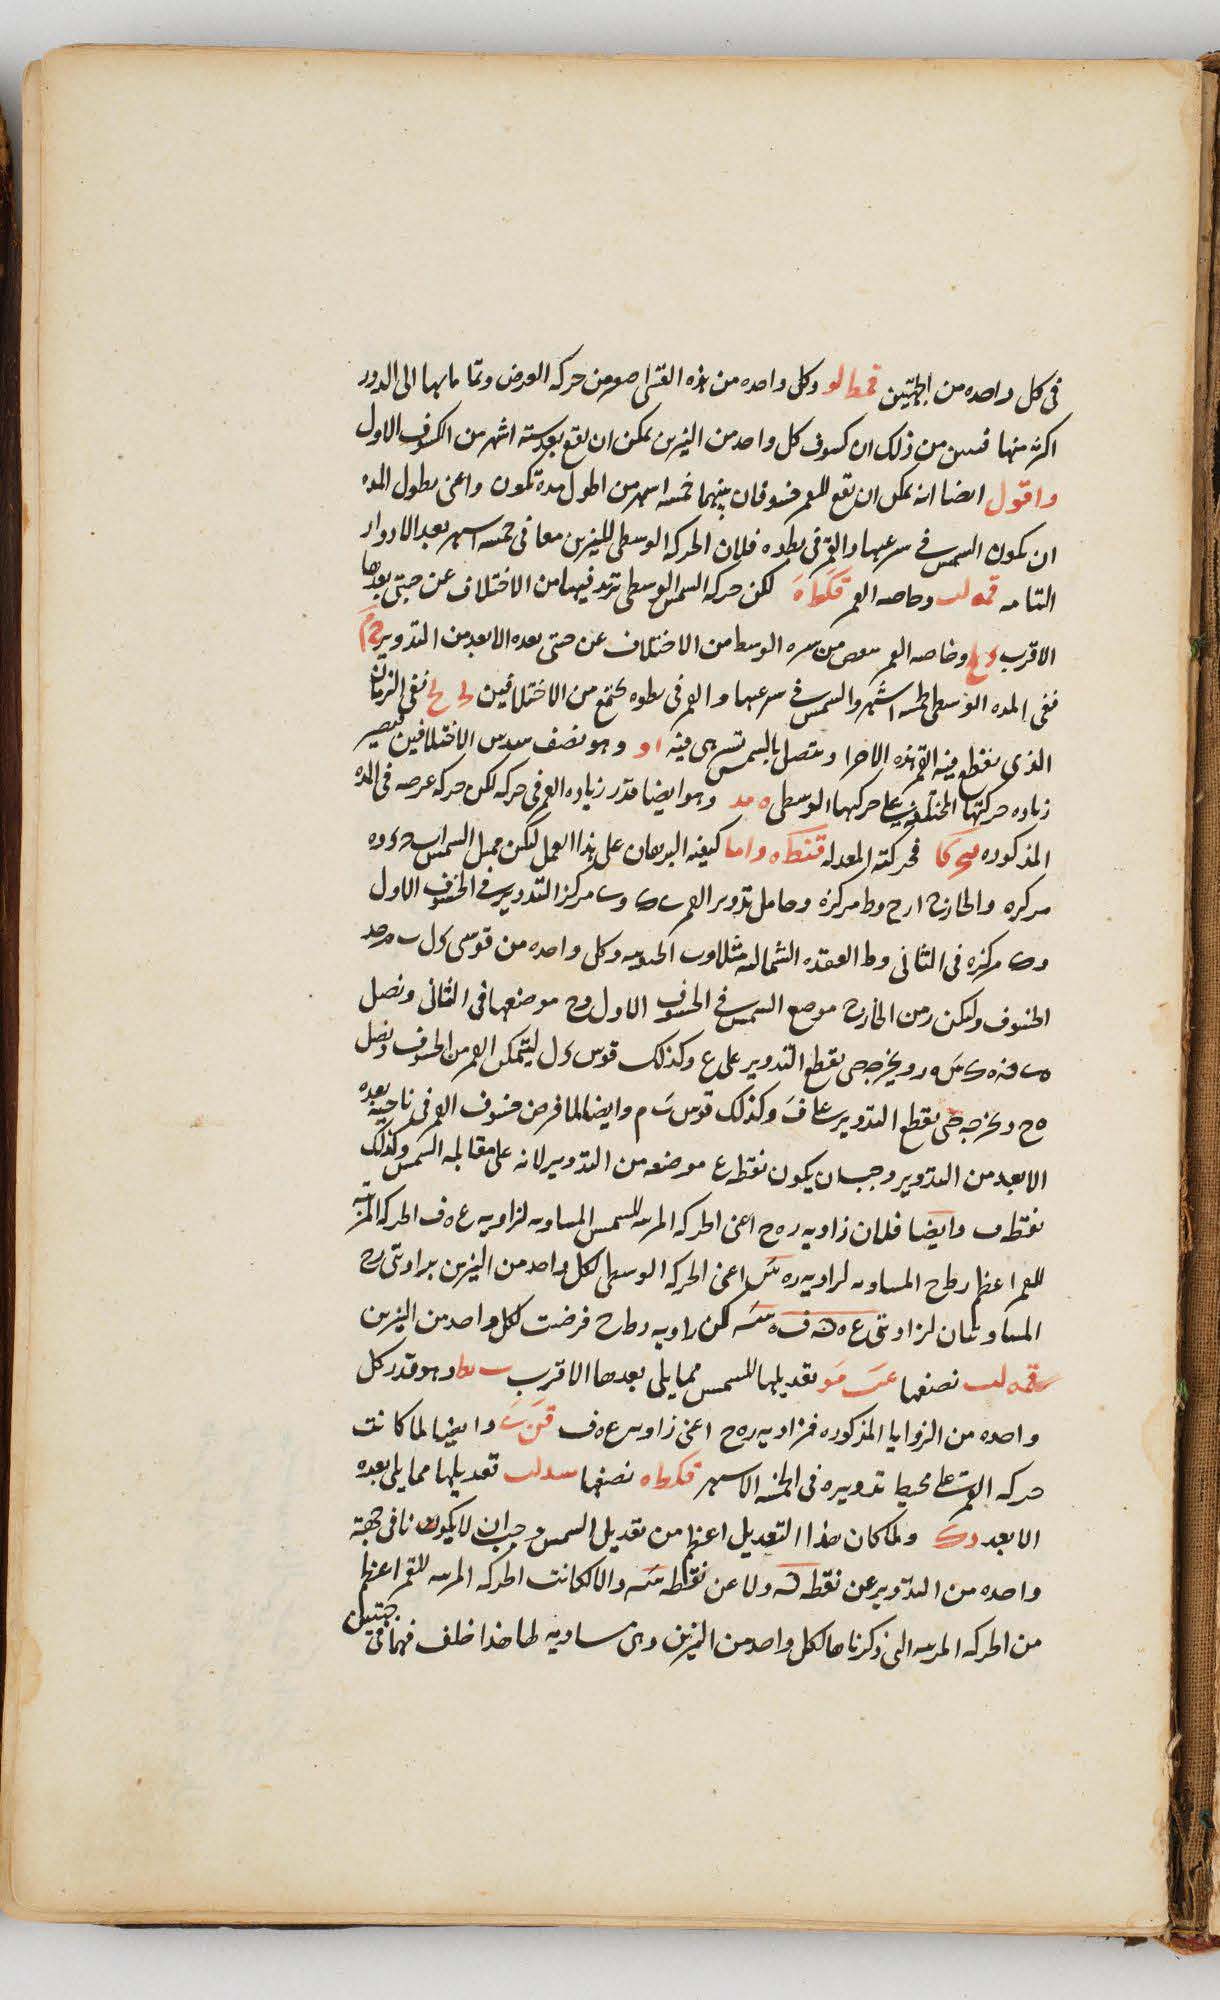 فى كل واحده من الجهتين قمط لو وكل واحده من هذه القسى اصغر من حركه العرض وتمامابها الى الدور
اكثر منها فتبين من ذلك ان كسوف كل واحد من النيرين يمكن ان يقع بعد سته اشهر من الكسوف الاول
واقول ايضا انه يمكن ان يقع للقمر خسوفان بينهما خمسه اشهر من اطول مده تكون واعنى بطول المده
ان يكون الشمس فى سرعتها والقمر فى بطوه فلان الحركه الوسطى للنيرين معا فى خمسه اشهر بعد الادوار
التامه قمه لب وخاصه القمر قكط ه لكن حركه الشمس الوسطى تزيد فيها من الاختلاف عن جنبتى بعدها
الاقرب وخاصه القمر ينقص من سيره الوسط من الاختلاف عن جنبتى بعده الابعد من التدوير ح م
ففى المده الوسطى لخمسه اشهر والشمس فى سرعتها والقمر فى بطوه يجتمع من الاختلافين ففى الزمان
الذى يقطع فيه القمر هذه الاجزا ويتصل بالشمس تسير هى فيه ا و وهو نصف سدس الاختلافين فيصير
زياده حركتها المختلفه على حركتها الوسطى ه مد وهو ايضا قدر زياده القمر فى حركه لكن حركه عرضه فى المده
المذكوره فحركته المعدله قنط ه واما كيفيه البرهان على هذا العمل لكن ممثل الشمس ا ب ح د وه
مركزه والخارج ا ر ح وط مركزه وحامل تدوير القمر وب مركز التدوير فى الخسوف الاول
وى مركزه فى الثانى وط العقده الشماليه مثلا وب الجنوبيه وكل واحده من قوسى كل م حد
الخسوف وليكن ر من الخارج موضع الشمس فى الخسوف الاول وح موضعها فى الثانى ونصل
ويخرج حتى يقطع التدوير على ع وكذلك قوس كل ليتمكن القمر من الخسوف ونصل
ه ح ويخرجه حتى يقطع التدوير على ف وكذلك قوس م وايضا لما فرض خسوف القمر فى ناحيه بعده
الابعد من التدوير وجب ان يكون نقطه ع موضعه من التدوير لانه على مقابله الشمس وكذلك
نقطه ف وايضا فلان زاويه ر ه ح اعنى الحركه المرئيه للشمس المساويه لزاويه ع ه ف الحركه المرئيه
للقمر اعظم ر ط ح المساويه لزاويه ر ه س اعنى الحركه الوسطى لكل واحد من النيرين بزاويتى ر ح
المساويتان لزاويتى ع ه ف ه س لكن زاويه ر ط ح فرضت لكل واحد من النيرين
قمه لب نصفها عب مو تعديلها للشمس مما يلى بعدها الاقرب وهو قدر كل
واحده من الزوايا المذكوره فزاويه ر ه ح اعنى زاويه ع ه ف قن وايضا لما كانت
حركه القمر على محيط تدويره فى الخمسه الاشهر قكط ه نصفها سد لب تعديلها مما يلى بعده
الابعد ولما كان هذا التعديل اعظم من تعديل الشمس وجب ان لا يكونا فى جهه
واحده من التدوير عن نقطه ولا عن نقطه س والا لكانت الحركه المرئيه للقمر اعظم
من الحركه المرئيه التى ذكرناها لكل واحد من النيرين وهى مساويه لها هذا خلف فهما فى جهتين